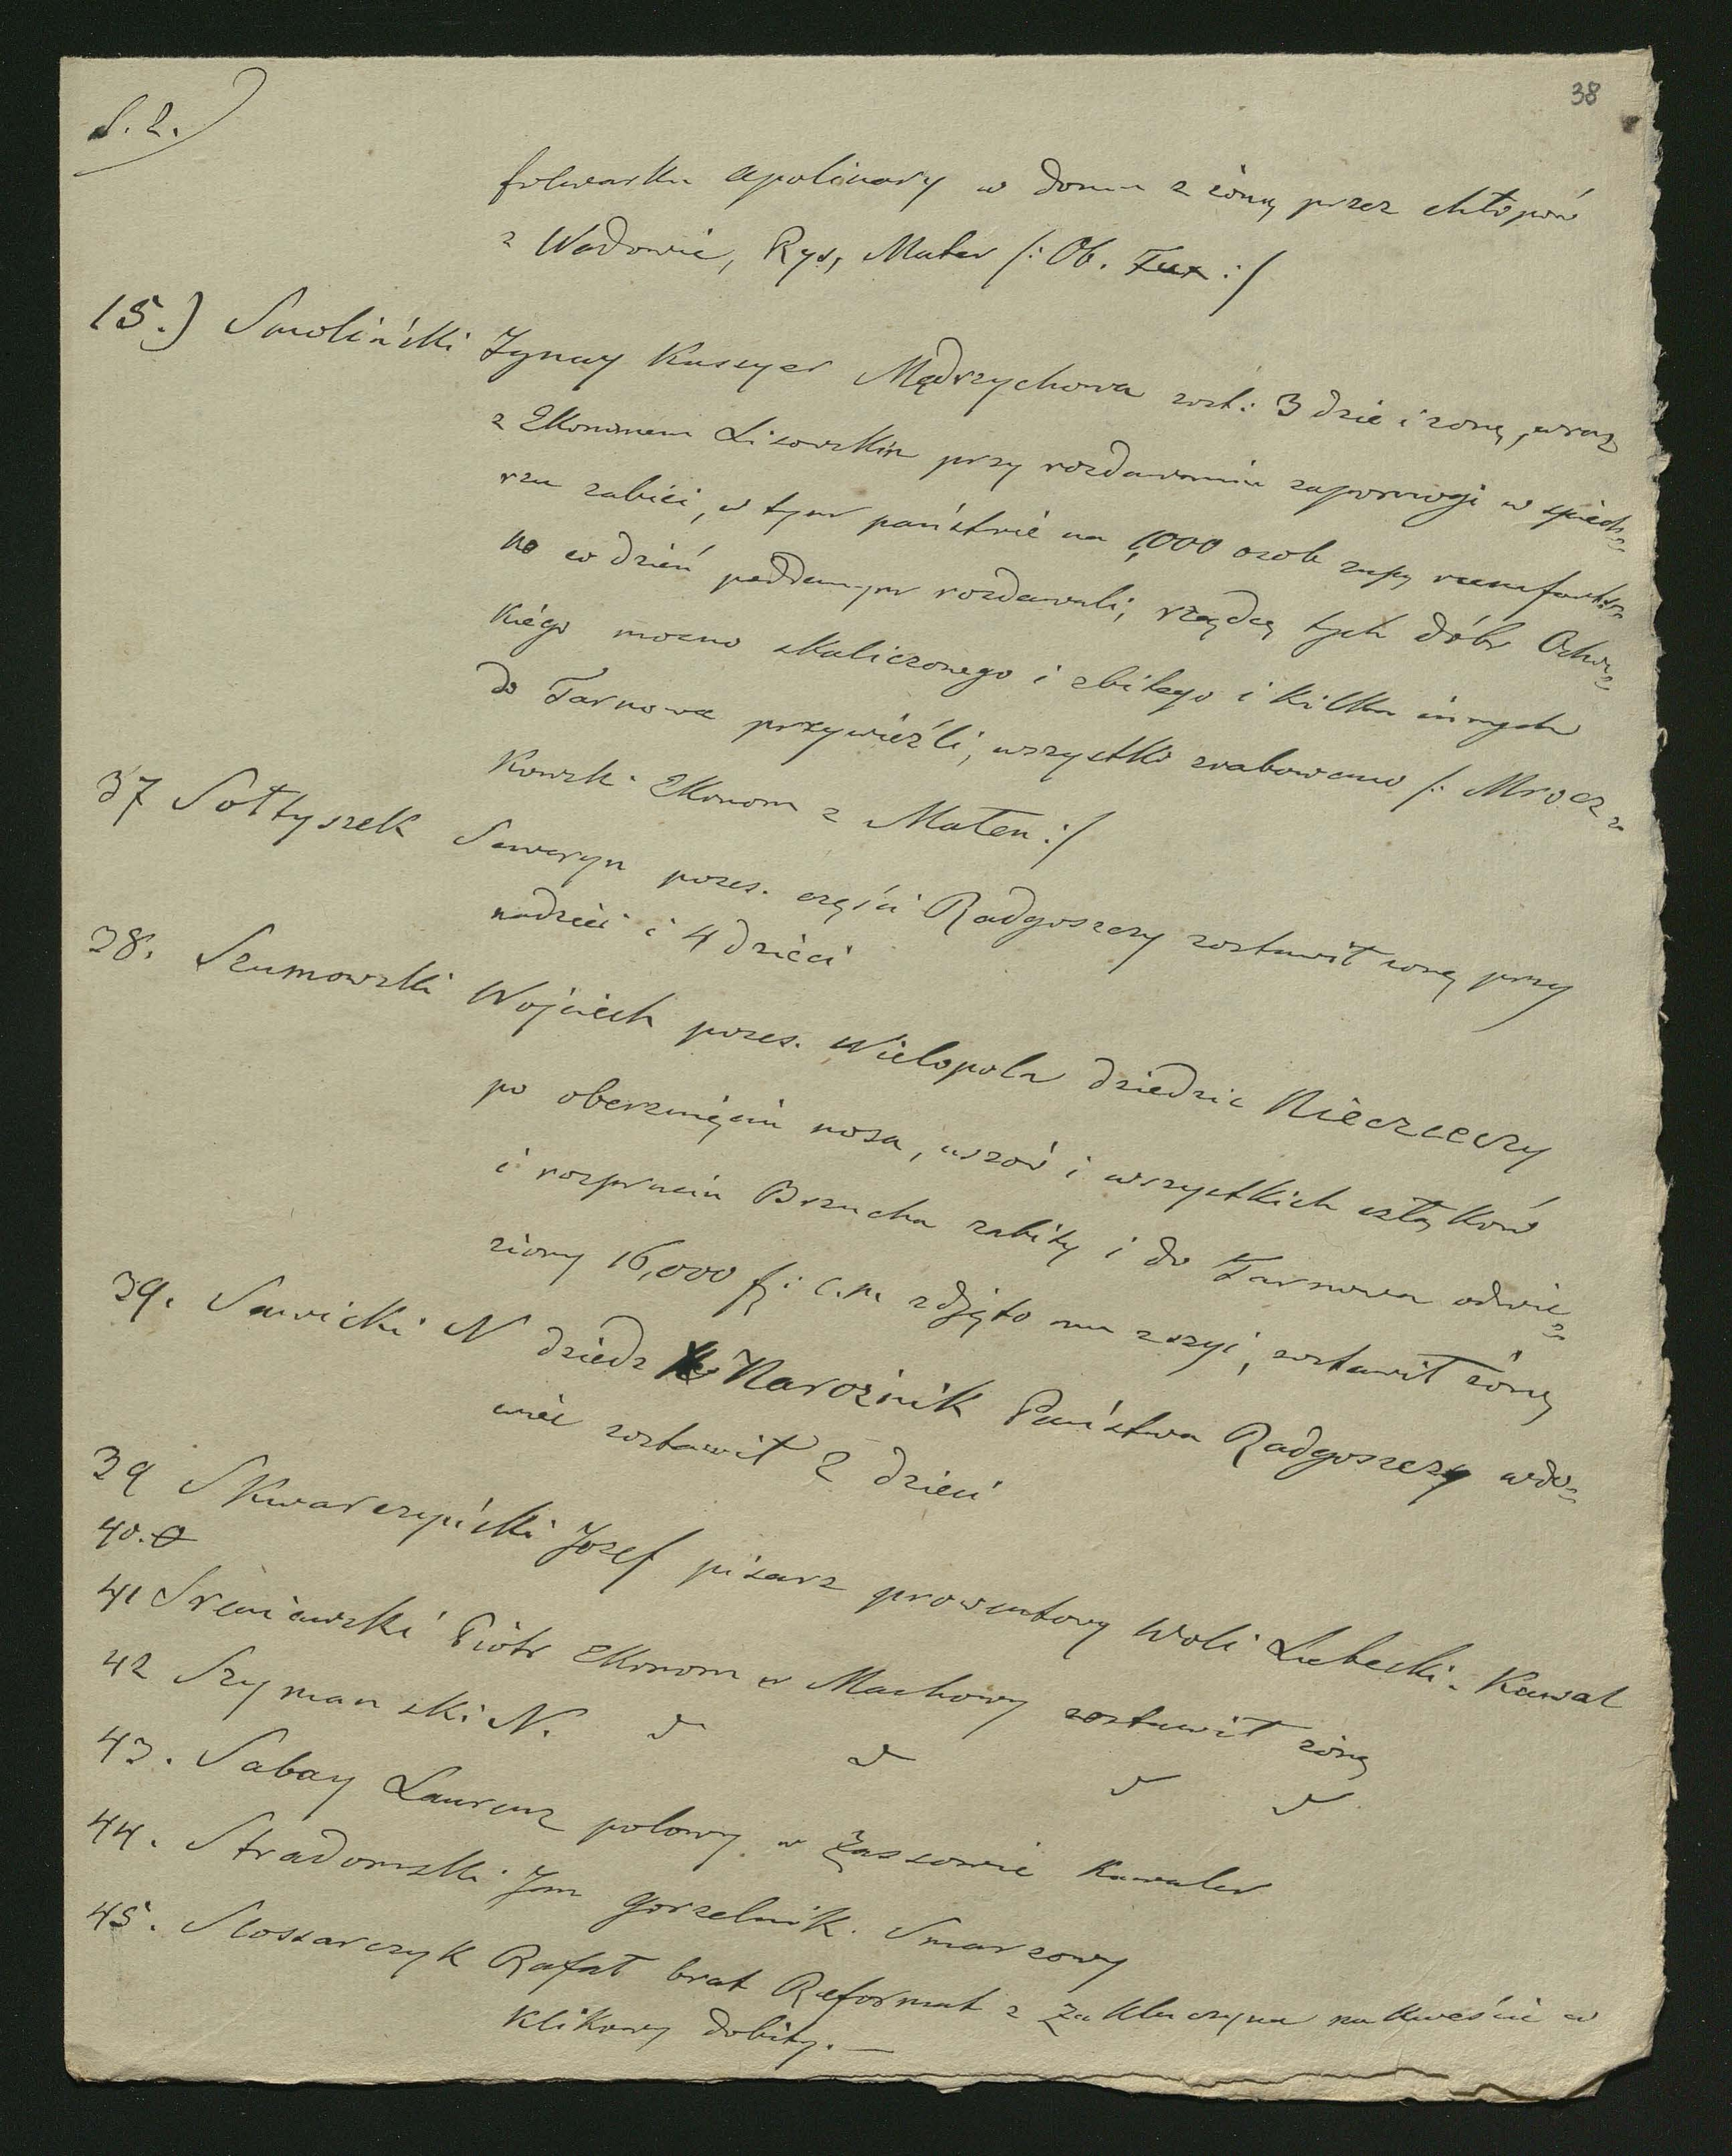 38
S. 2.)
folwarku Apolinary w domu z żoną przez chłopów
z Wadowic, Rys, Mater /: Ob. :/
15.) Smoliński Ignacy Kasyer Mędrzychowa zost: 3 dzie i żonę, wraz
z Ekonomem Lisowskim przy rozdawaniu zapomogi w śpich=
rzu zabici, w tym państwie na 1,000 osob zupę rumforts=
ko co dzień poddanym rozdawali, rządcę tych dóbr Ocho=
kiégo mocno skaliczonego i zbitego i kilku innych
do Tarnowa przywieźli, wszystko zrabowano /: Mrocz=
kowsk. Ekonom z Maten :/
37 Sołtyszek Seweryn poses. części Radgoszczy zostawił żonę przy
nadziei i 4 dzieci
38. Szumowski Wojciech poses. Wielopola dziedzic Nieczieczy
po oberznięciu nosa, uszów i wszystkich członków
i rozpruciu Brzucha zabity i do Tarnowa odwie=
ziony 16,000 f: c.m. zdjęto mu z szyi, zostawił żonę
39. Sawicki N dziedz Narożnik Państwa Radgoszczy wdo=
wiec zostawił 2 dzieci
39 Skwarczyński Jozef pisarz prowentowy Woli Lubecki. Kawal
40. 0
41 Sreniawski Piotr Ekonom w Machowy zostawił żonę
42 Szymanski N. d d d d
43. Sabay Laurenz polowy w Zassowie Kawaler
44. Stradomski Jan gorzelnik Smarzowy
45. Slosarczyk Rafał brat Reformat z Zakluczyna na kweście w
Klikowy dobity. —